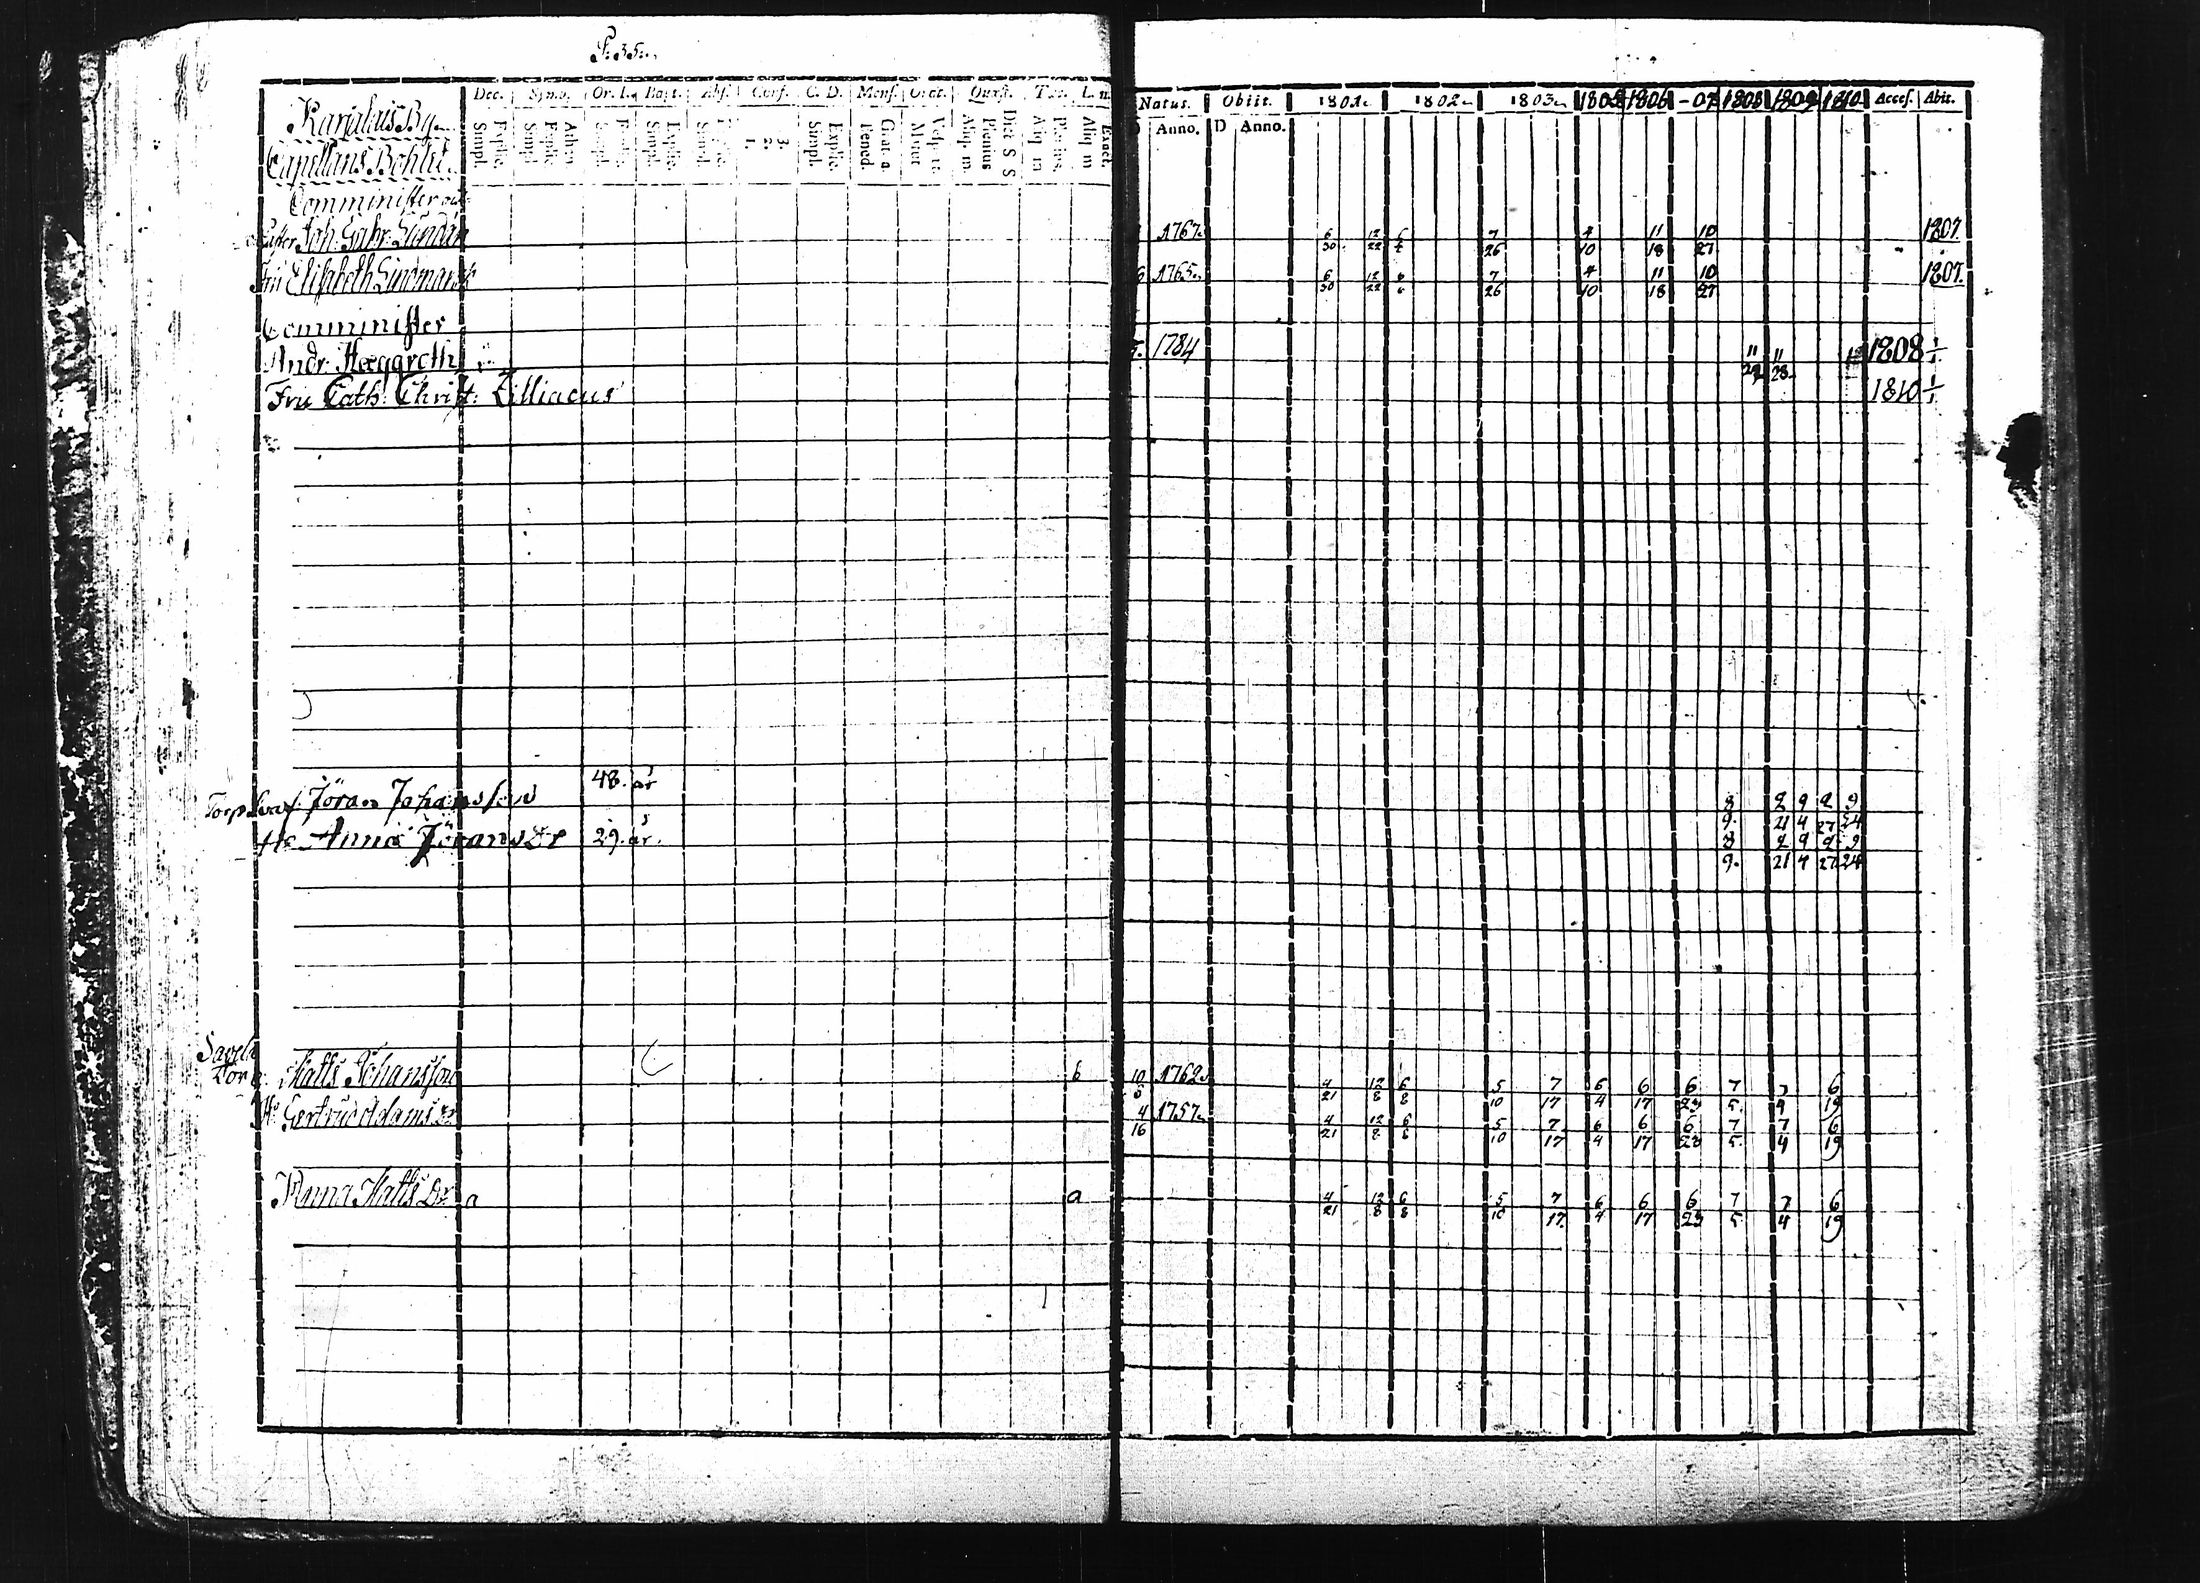 P. 35.
Karjakus By
Capellans Bohlet
Dec. Symb. Or. D. Bapt. Abs. Conf. C. D. Mens. Orat. Quæst. T. L. m
Simpl. Explic. Simpl. Explic. Athan Simpl. Explic. Simpl. Explic. Simpl. 1. 2. 3. Simpl. Explic. Bened. Grat. a Matut Vesp. Aliq. m. Plenius Dict S S Aliq. m Plenius. Aliq m Exact.
Natus. Obiit. 1801. 1802. 1803. 1805 1806 -07 1808 1809 1810 Acces. Abit.
D Anno. D Anno.
Comminister
Joh: Gabr: Sundán 1767. 6/30 12/22 7/26 4/10 11/18 10/27 1807.
Fru Elisabeth Lindmarck 1765. 6/30 12/22 7/26 4/10 11/18 10/27 1807.
Comminister
Andr: Heggroth 1784 11/29 11/28 1808 1/1
Fru Cath: Christ: Zilliacus 1810 1/1
Torp Jöran Johansson 48. år 8/9. 2/21 9/4 2/27 9/24
H. Anna Jörans Dr 29. år. 8/9. 2/21 9/4 2/27 9/24
Torp
Matts Johansson b 10/8 1762. 4/21 12/8 6/8 5/10 7/17 6/4 6/17 6/23 7/5. 7/4 6/19
Hu Gertrud Adams Dr 4/16 1757. 4/21 12/8 6/8 5/10 7/17 6/4 6/17 6/23 7/5. 7/4 6/19
Anna Matts Dr a a 4/21 12/8 6/8 5/10 7/17 6/4 6/17 6/23 7/5 7/4 6/19